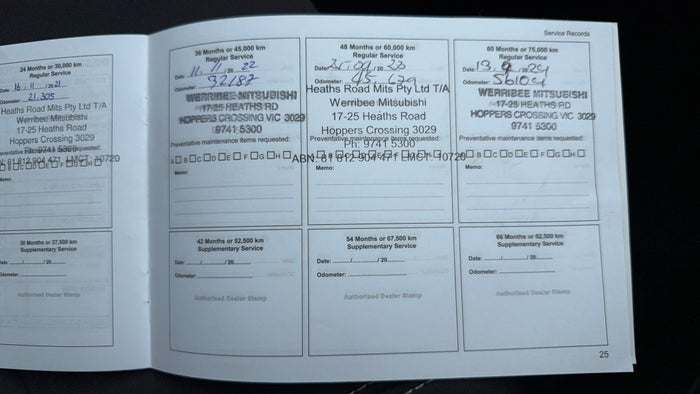 Service Records
24 Months or 30,000 km
Regular Service
Date: 16 / 11 / 2021
Odometer: 21,305
Heaths Road Mits Pty Ltd T/A
Werribee Mitsubishi
17-25 Heaths Road
Hoppers Crossing 3029
Preventative maintenance items requested:
Ph: 9741 5300
81 812 904 471 LMCT: 10720
Memo:
30 Months or 37,500 km
Supplementary Service
Date: / / 20
Odometer:
36 Months or 45,000 km
Regular Service
Date: 11 / 11 / 20 22
Odometer: 32187
WERRIBEE MITSUBISHI
17-25 HEATHS RD
HOPPERS CROSSING VIC 3029
9741 5300
Preventative maintenance items requested:
A B C D E F G H
Memo:
42 Months or 52,500 km
Supplementary Service
Date: / / 20
Odometer:
Authorised Dealer Stamp
48 Months or 60,000 km
Regular Service
Date: / 20 23
Odometer: 45
Heaths Road Mits Pty Ltd T/A
Werribee Mitsubishi
17-25 Heaths Road
Hoppers Crossing 3029
Preventative maintenance items requested:
Ph: 9741 5300
ABN: 81 812 904 471 LMCT: 10720
Memo:
54 Months or 67,500 km
Supplementary Service
Date: / / 20
Odometer:
Authorised Dealer Stamp
60 Months or 75,000 km
Regular Service
Date: 13 / 9 / 2024
Odometer: 56104
WERRIBEE MITSUBISHI
17-25 HEATHS RD
HOPPERS CROSSING VIC 3029
9741 5300
Preventative maintenance items requested:
B C D E F G H
Memo:
66 Months or 82,500 km
Supplementary Service
Date: / / 20
Odometer:
Authorised Dealer Stamp
25